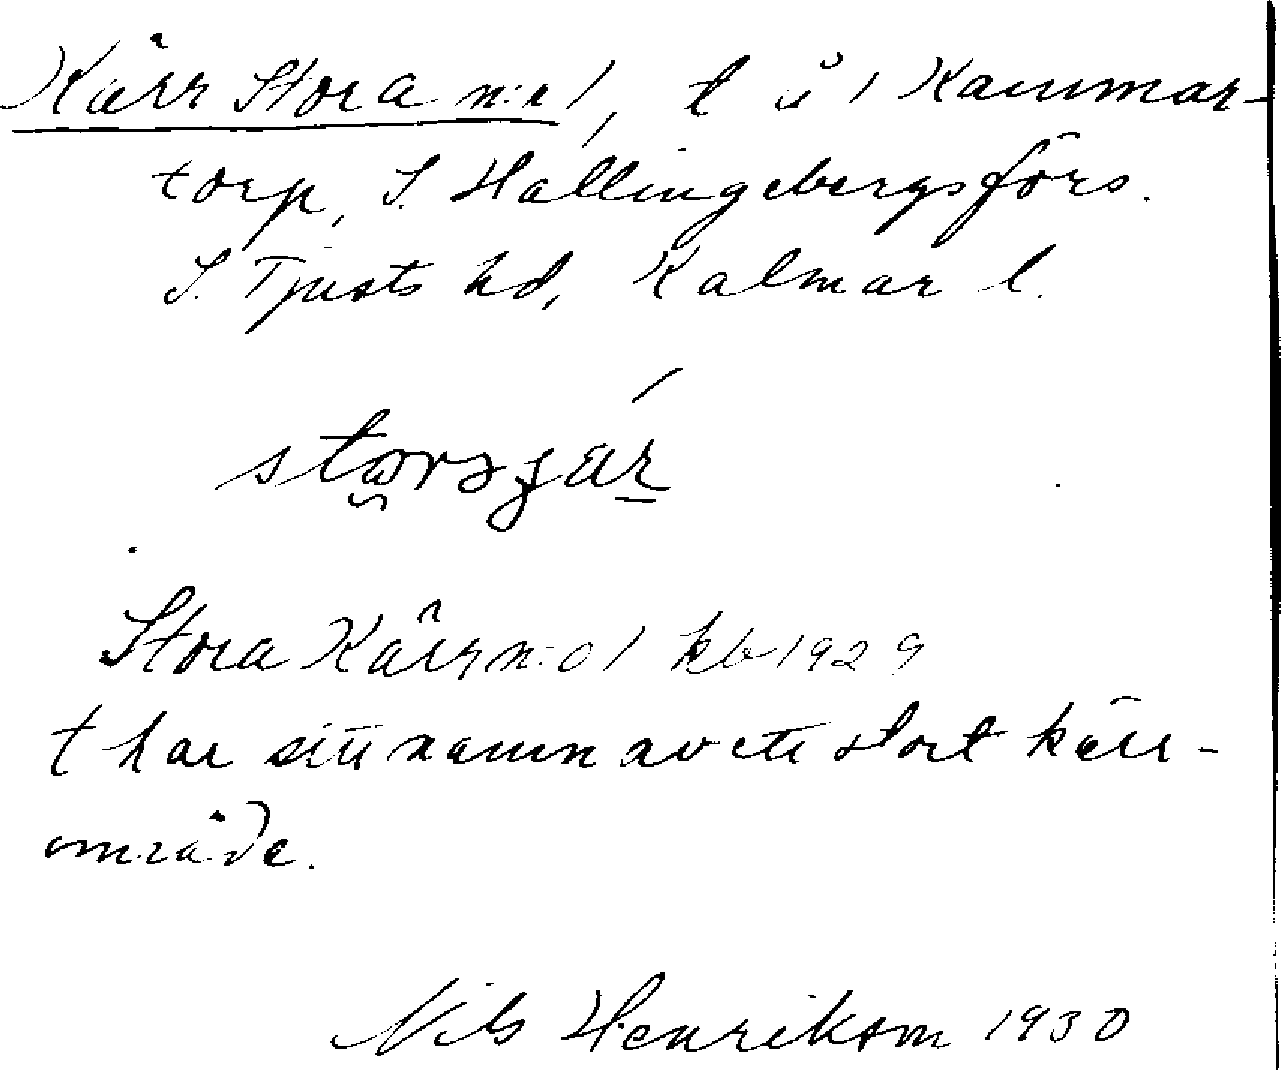 Kärr Stora n:r 1, t å 1 Kammar-
torp, S. Hallingebergs förs.
S. Tjusts hd, Kalmar l.
Stora Kärr n:o 1 kb 1929
t har sitt namn av ett stort kärr-
område.
Nils Henrikson 1930